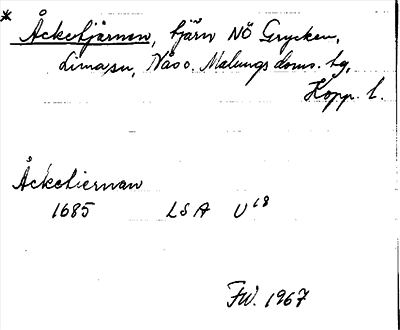 * Åcketjärnen, tjärn NÖ Grycken,
Lima sn, Nås o. Malungs doms. bg,
Kopp. l.
Åcketiernan
1685 LSA U18
FW. 1967